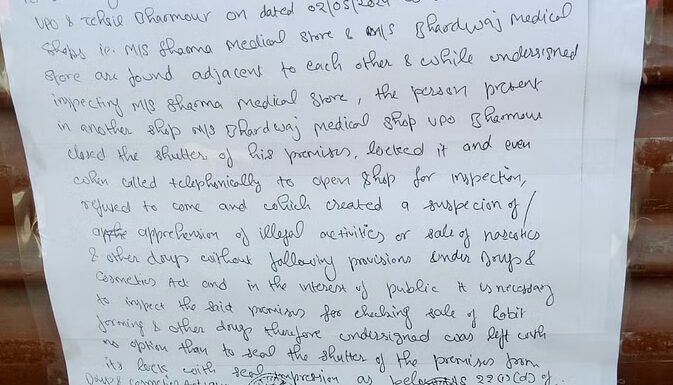 VPO & Tehsil Bharmour on dated 02/05/2024
Shops ie. M/S Sharma Medical Store & M/S Bhardwaj Medical
Store are found adjacent to each other & while undersigned
inspecting M/S Sharma Medical Store, the person present
in another shop M/S Bhardwaj Medical Shop VPO Bharmour
closed the shutter of his premises, locked it and even
when called telephonically to open shop for inspection,
refused to come and which created a suspecion of/
apprehension of illegal activities or sale of narcotics
& other drugs without following provisions under Drugs &
Cosmetics Act and in the interest of public it is necessary
to inspect the said premises for checking sale of habit
forming & other drugs therefore undersigned was left with
no option than to seal the shutter of the premises from
its lock with seal impression as below 22(1)(d) of
Drugs & Cosmetic